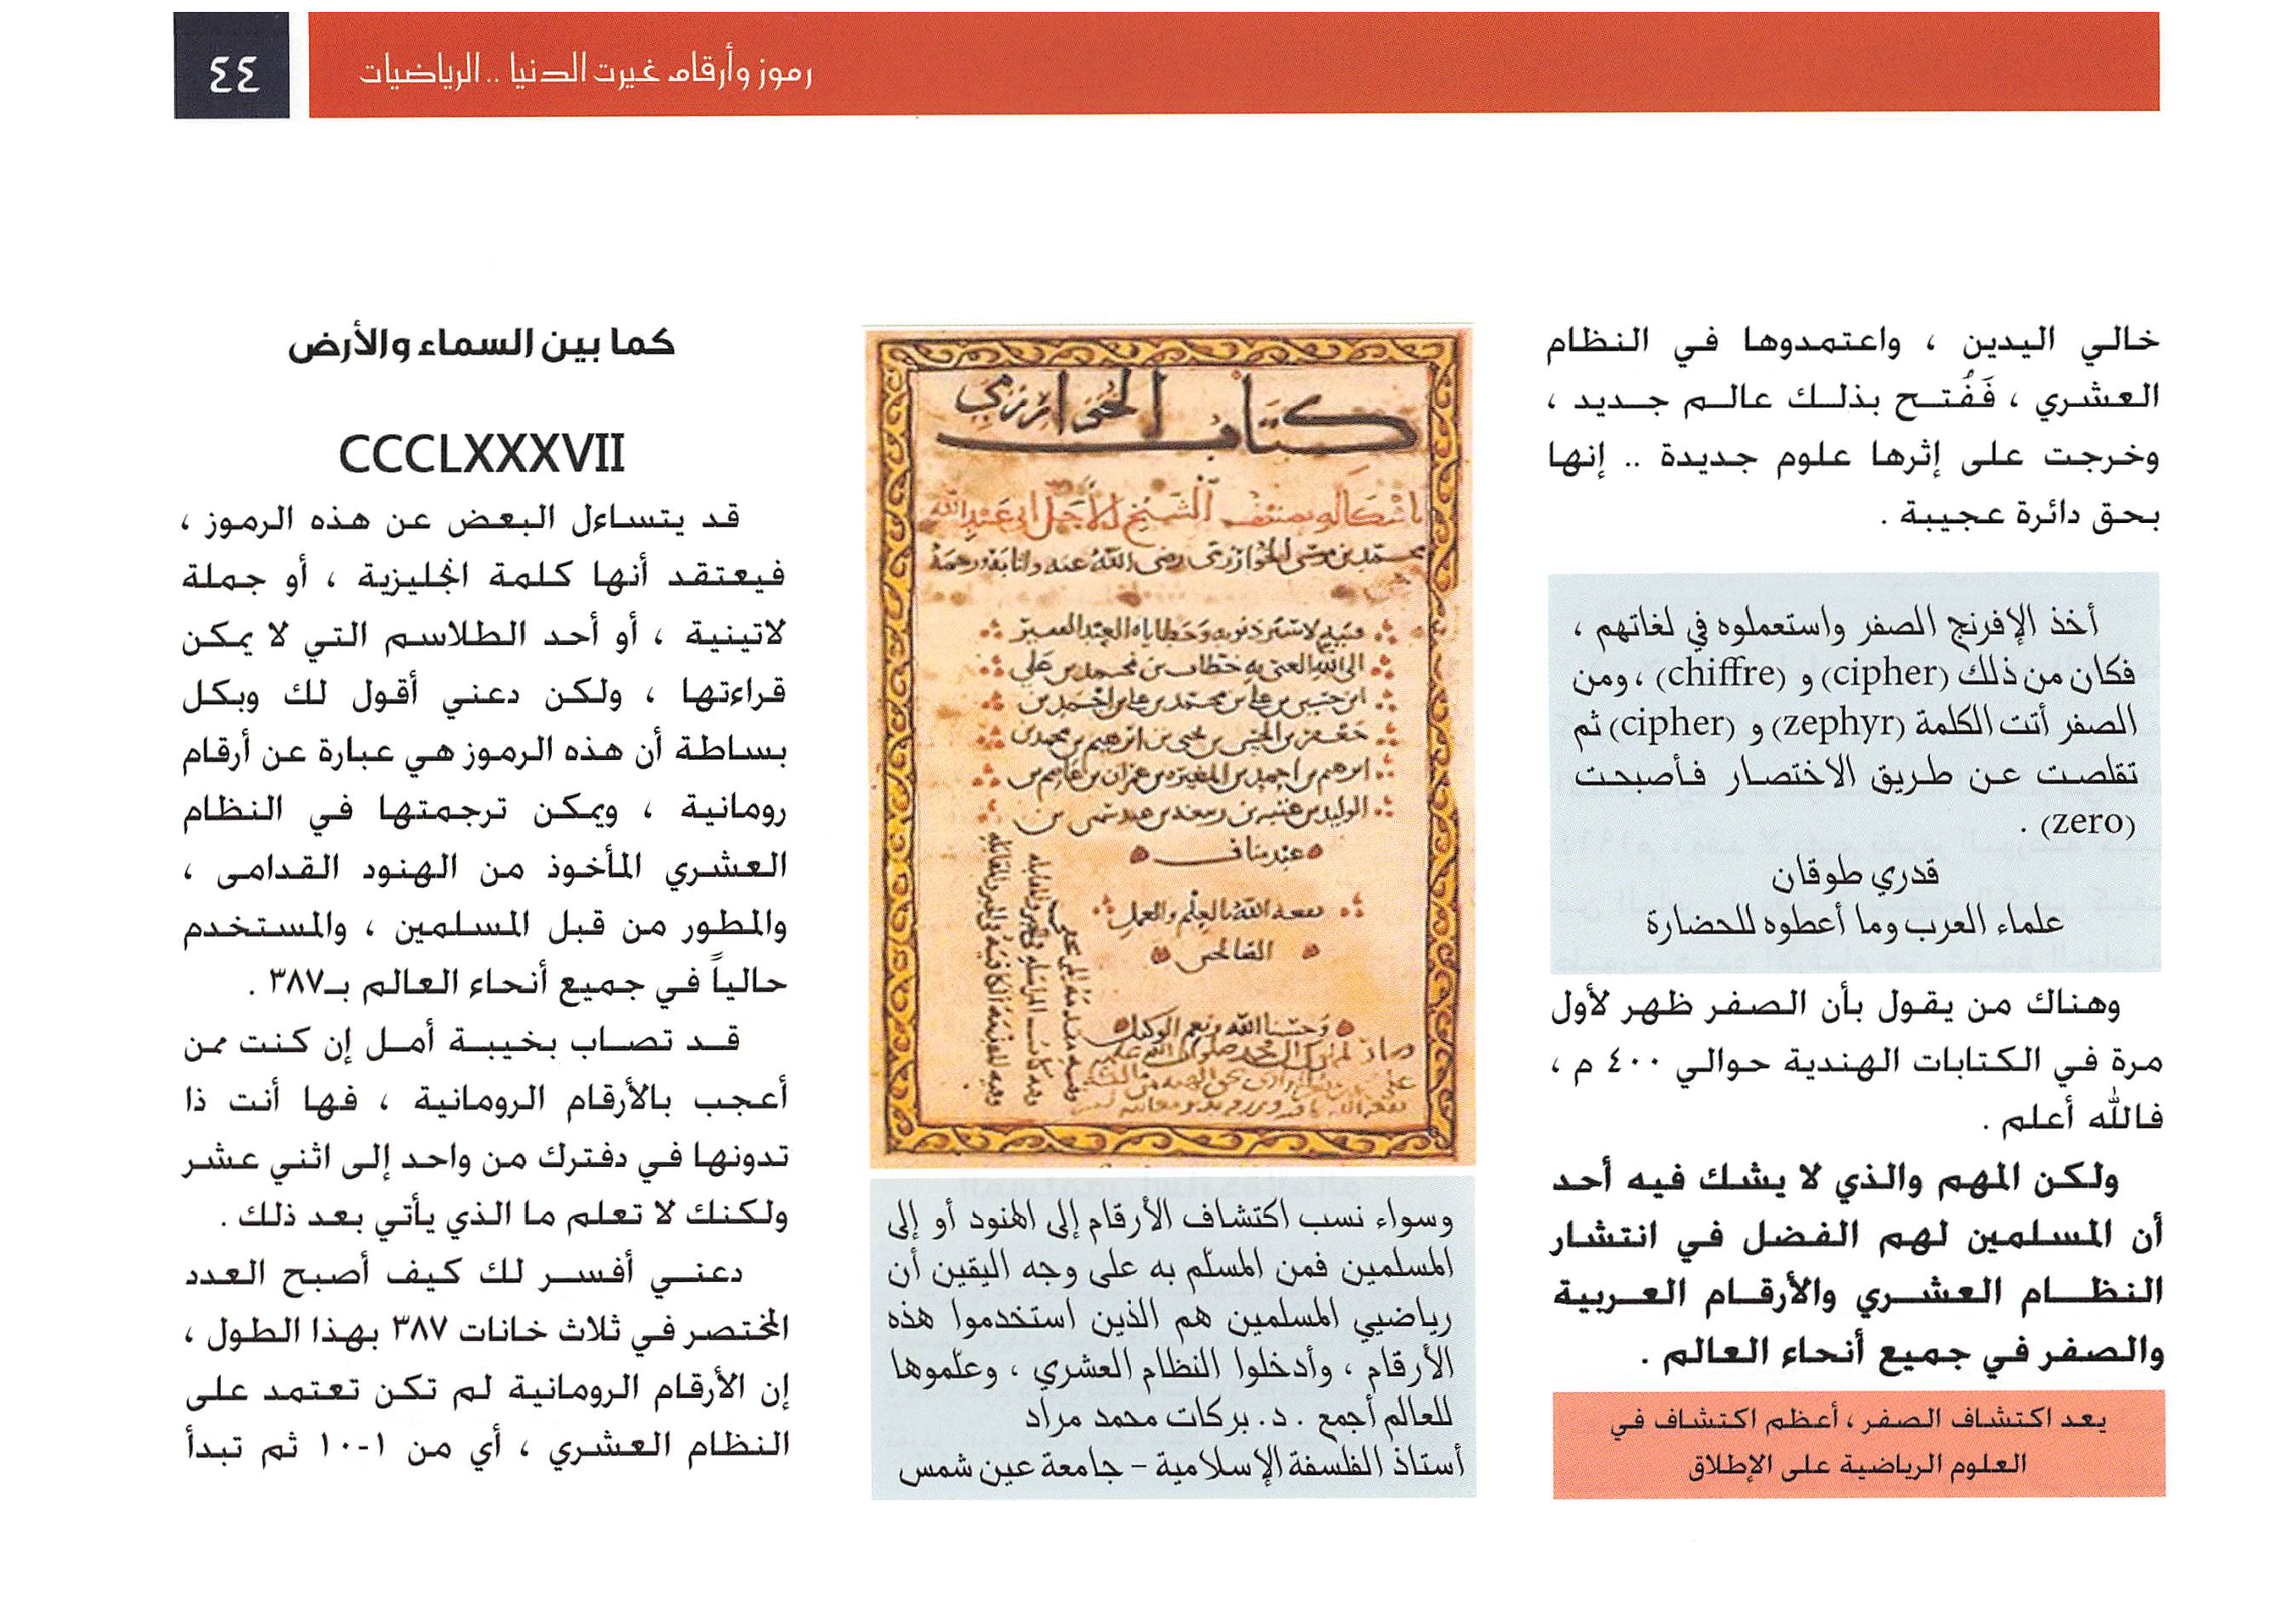 رموز وأرقام غيرت الدنيا .. الرياضيات
٤٤
خالي اليدين ، واعتمدوها في النظام
العشري ، فَفُتح بذلك عالم جديد ،
وخرجت على إثرها علوم جديدة .. إنها
بحق دائرة عجيبة .
أخذ الإفرنج الصفر واستعملوه في لغاتهم ،
فكان من ذلك (cipher) و (chiffre) ، ومن
الصفر أتت الكلمة (zephyr) و (cipher) ثم
تقلصت عن طريق الاختصار فأصبحت
(zero) .
قدري طوقان
علماء العرب وما أعطوه للحضارة
وهناك من يقول بأن الصفر ظهر لأول
مرة في الكتابات الهندية حوالي ٤٠٠ م ،
فالله أعلم .
ولكن المهم والذي لا يشك فيه أحد
أن المسلمين لهم الفضل في انتشار
النظام العشري والأرقام العربية
والصفر في جميع أنحاء العالم .
يعد اكتشاف الصفر ، أعظم اكتشاف في
العلوم الرياضية على الإطلاق
كتاب الخوارزمي
الشيخ الأجل أبي عبد الله
محمد بن موسى الخوارزمي رضي الله عنه
عبد مناف
نفعه الله بالعلم والعمل
وحسبنا الله ونعم الوكيل
وسواء نسب اكتشاف الأرقام إلى الهنود أو إلى
المسلمين فمن المسلّم به على وجه اليقين أن
رياضيي المسلمين هم الذين استخدموا هذه
الأرقام ، وأدخلوا النظام العشري ، وعلّموها
للعالم أجمع . د. بركات محمد مراد
أستاذ الفلسفة الإسلامية – جامعة عين شمس
كما بين السماء والأرض
CCCLXXXVII
قد يتساءل البعض عن هذه الرموز ،
فيعتقد أنها كلمة انجليزية ، أو جملة
لاتينية ، أو أحد الطلاسم التي لا يمكن
قراءتها ، ولكن دعني أقول لك وبكل
بساطة أن هذه الرموز هي عبارة عن أرقام
رومانية ، ويمكن ترجمتها في النظام
العشري المأخوذ من الهنود القدامى ،
والمطور من قبل المسلمين ، والمستخدم
حالياً في جميع أنحاء العالم بـ٣٨٧ .
قد تصاب بخيبة أمل إن كنت ممن
أعجب بالأرقام الرومانية ، فها أنت ذا
تدونها في دفترك من واحد إلى اثني عشر
ولكنك لا تعلم ما الذي يأتي بعد ذلك .
دعني أفسر لك كيف أصبح العدد
المختصر في ثلاث خانات ٣٨٧ بهذا الطول ،
إن الأرقام الرومانية لم تكن تعتمد على
النظام العشري ، أي من ١-١٠ ثم تبدأ